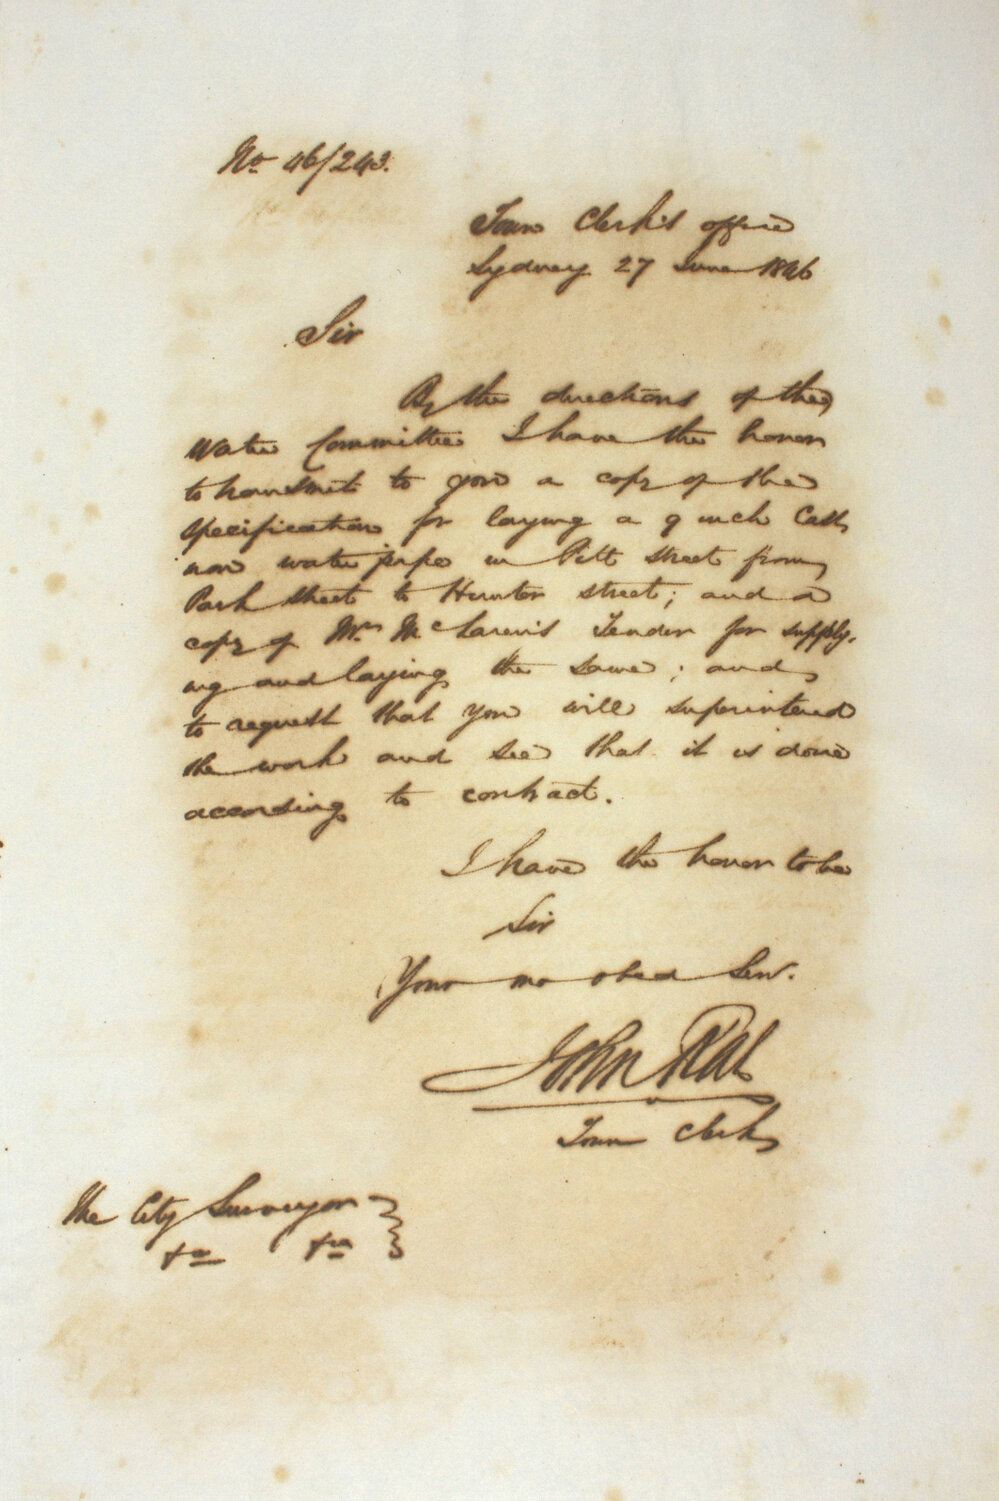 No 46/243.
Town Clerk's office
Sydney 27 June 1846
Sir
By the directions of the
Water Committee I have the honor
to transmit to you a copy of the
specification for laying a 9 inch Cast
iron water pipe in Pitt street from
Park street to Hunter street; and a
copy of Mrs McLaren's Tender for supply-
ing and laying the same; and
to request that you will superintend
the work and see that it is done
according to contract.
I have the honor to be
Sir
Your mo obed Serv.
John Rae
Town Clerk
The City Surveyor
&c &c